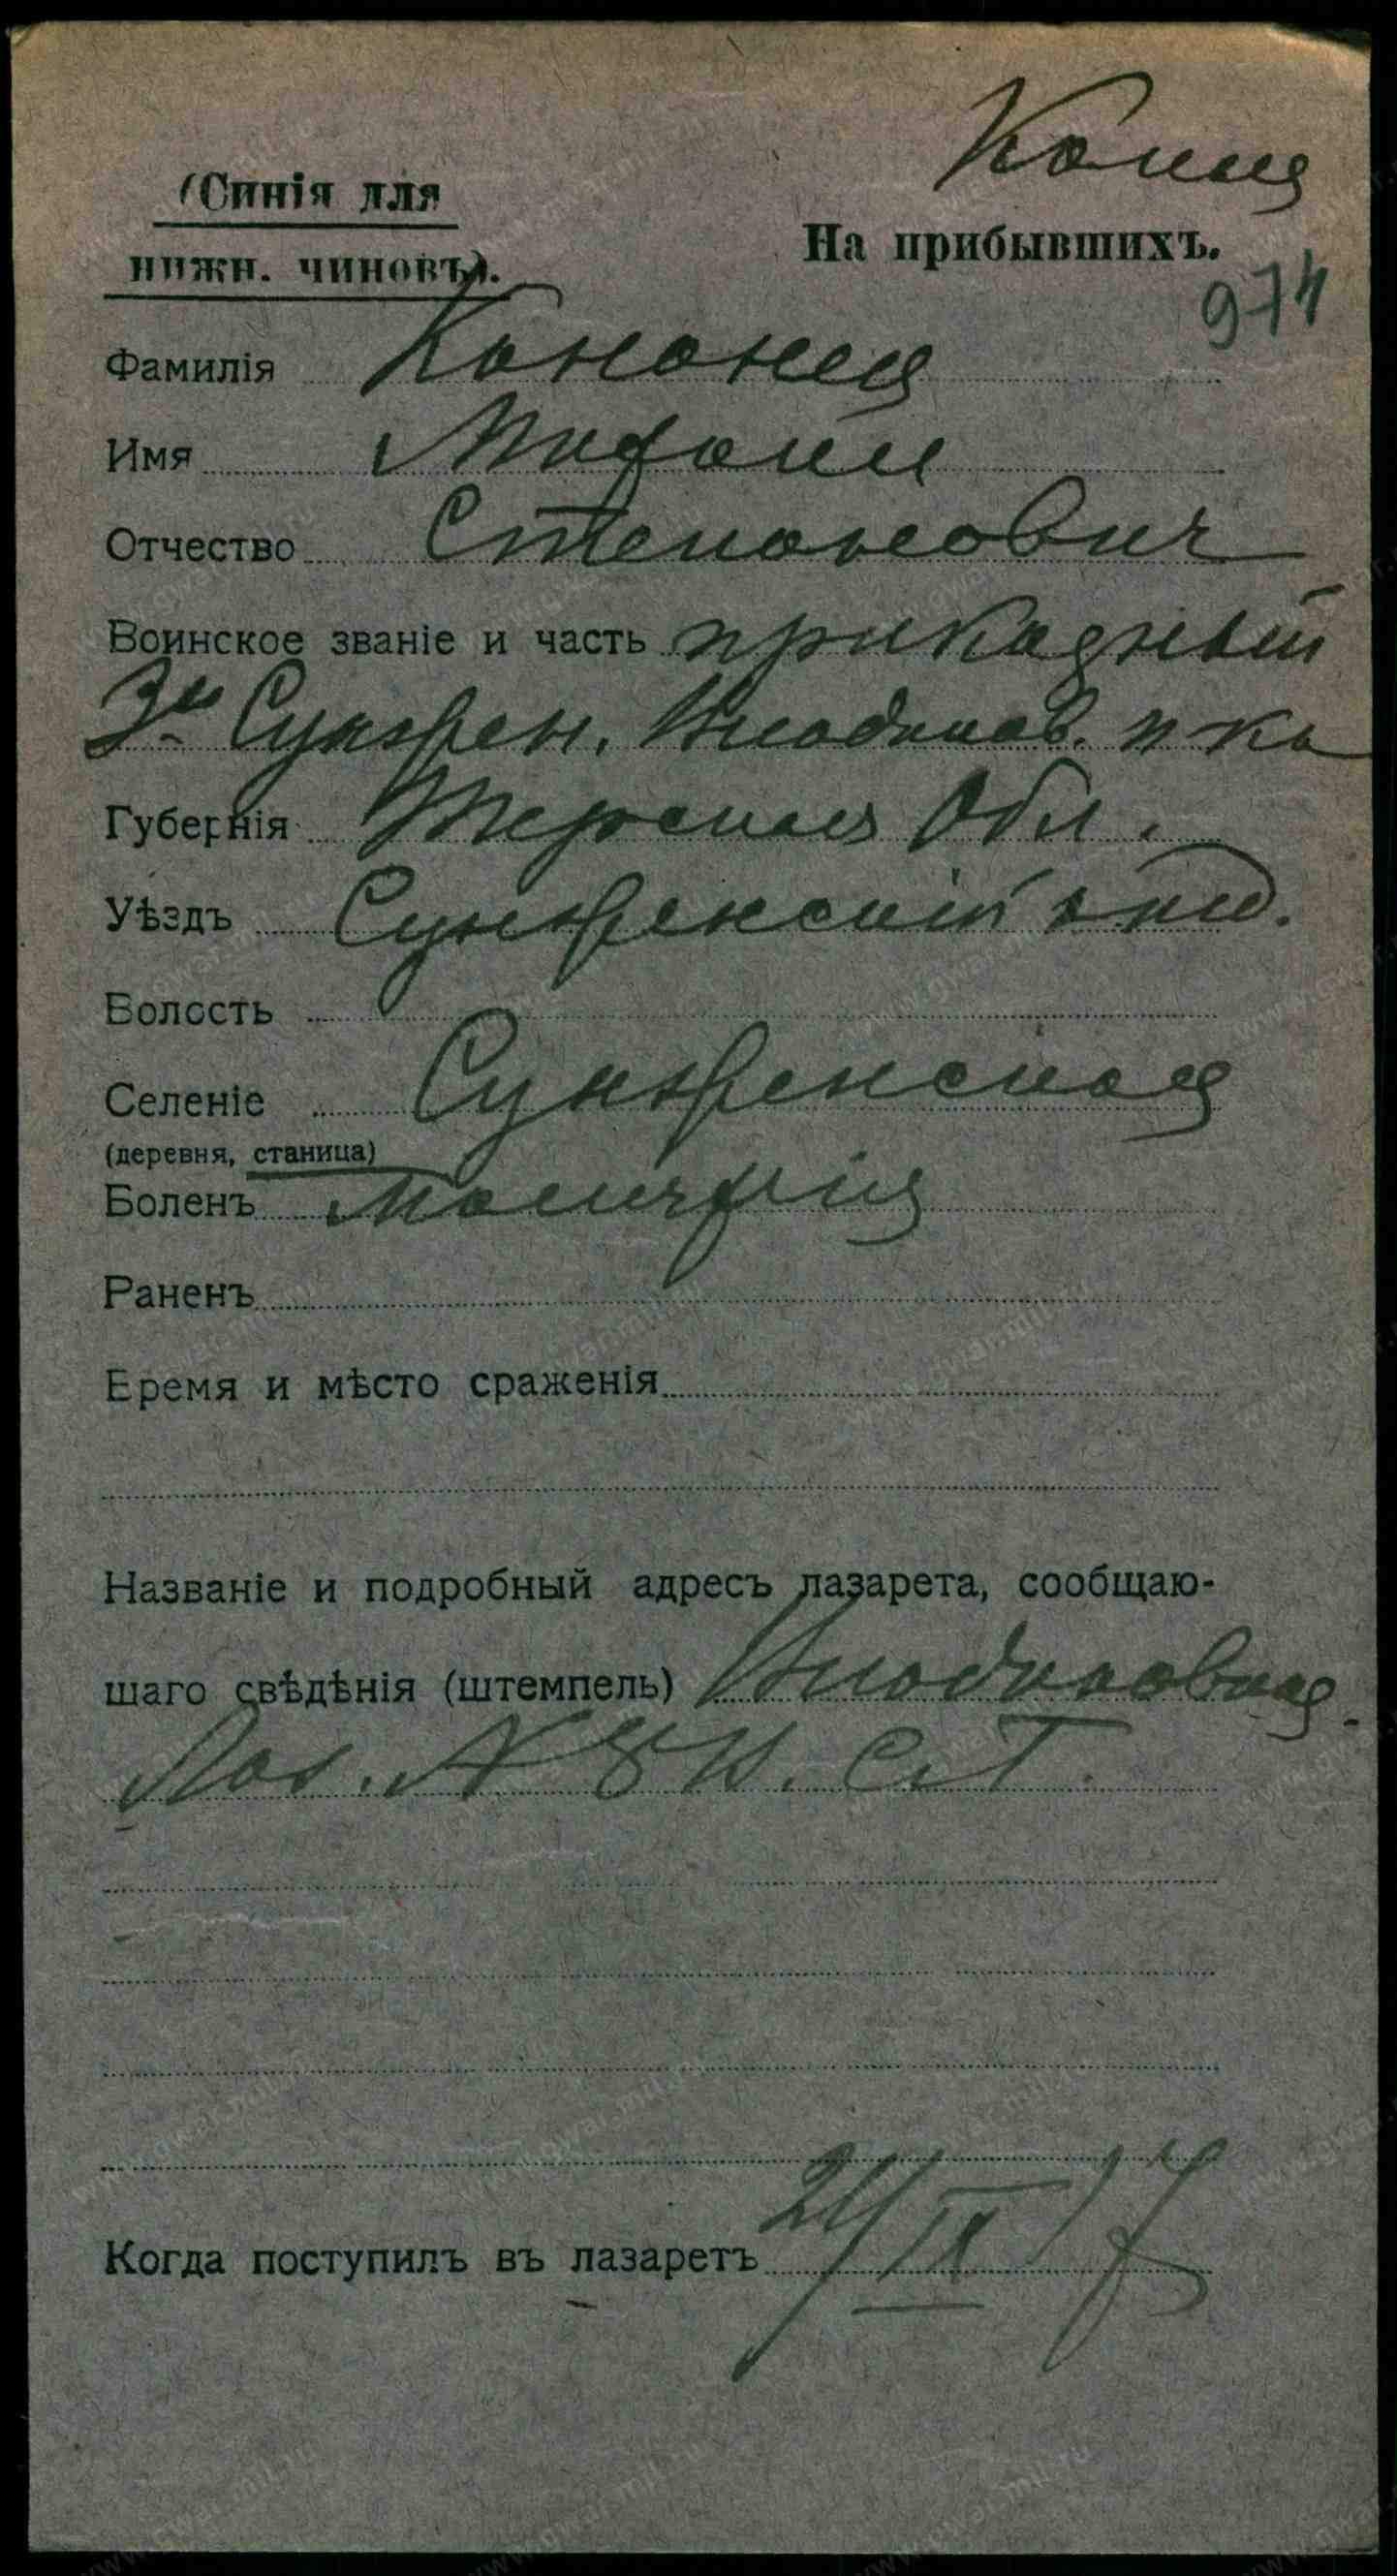 Копия
(Синія для
нижн. чиновъ).
На прибывшихъ.
974
Фамилія Кононец
Имя Митофин
Отчество Степанович
Воинское званіе и часть приказный
3й Сунжен. Владикав. п-ка
Губернія Терская Обл.
Уѣздъ Сунженский отд.
Волость
Селеніе Сунженская
(деревня, станица)
Боленъ Малярия
Раненъ
Время и мѣсто сраженія
Названіе и подробный адресъ лазарета, сообщаю-
шаго свѣдѣнія (штемпель) Владикавказ.
Лаз. № 8
Когда поступилъ въ лазаретъ 24/IX 17